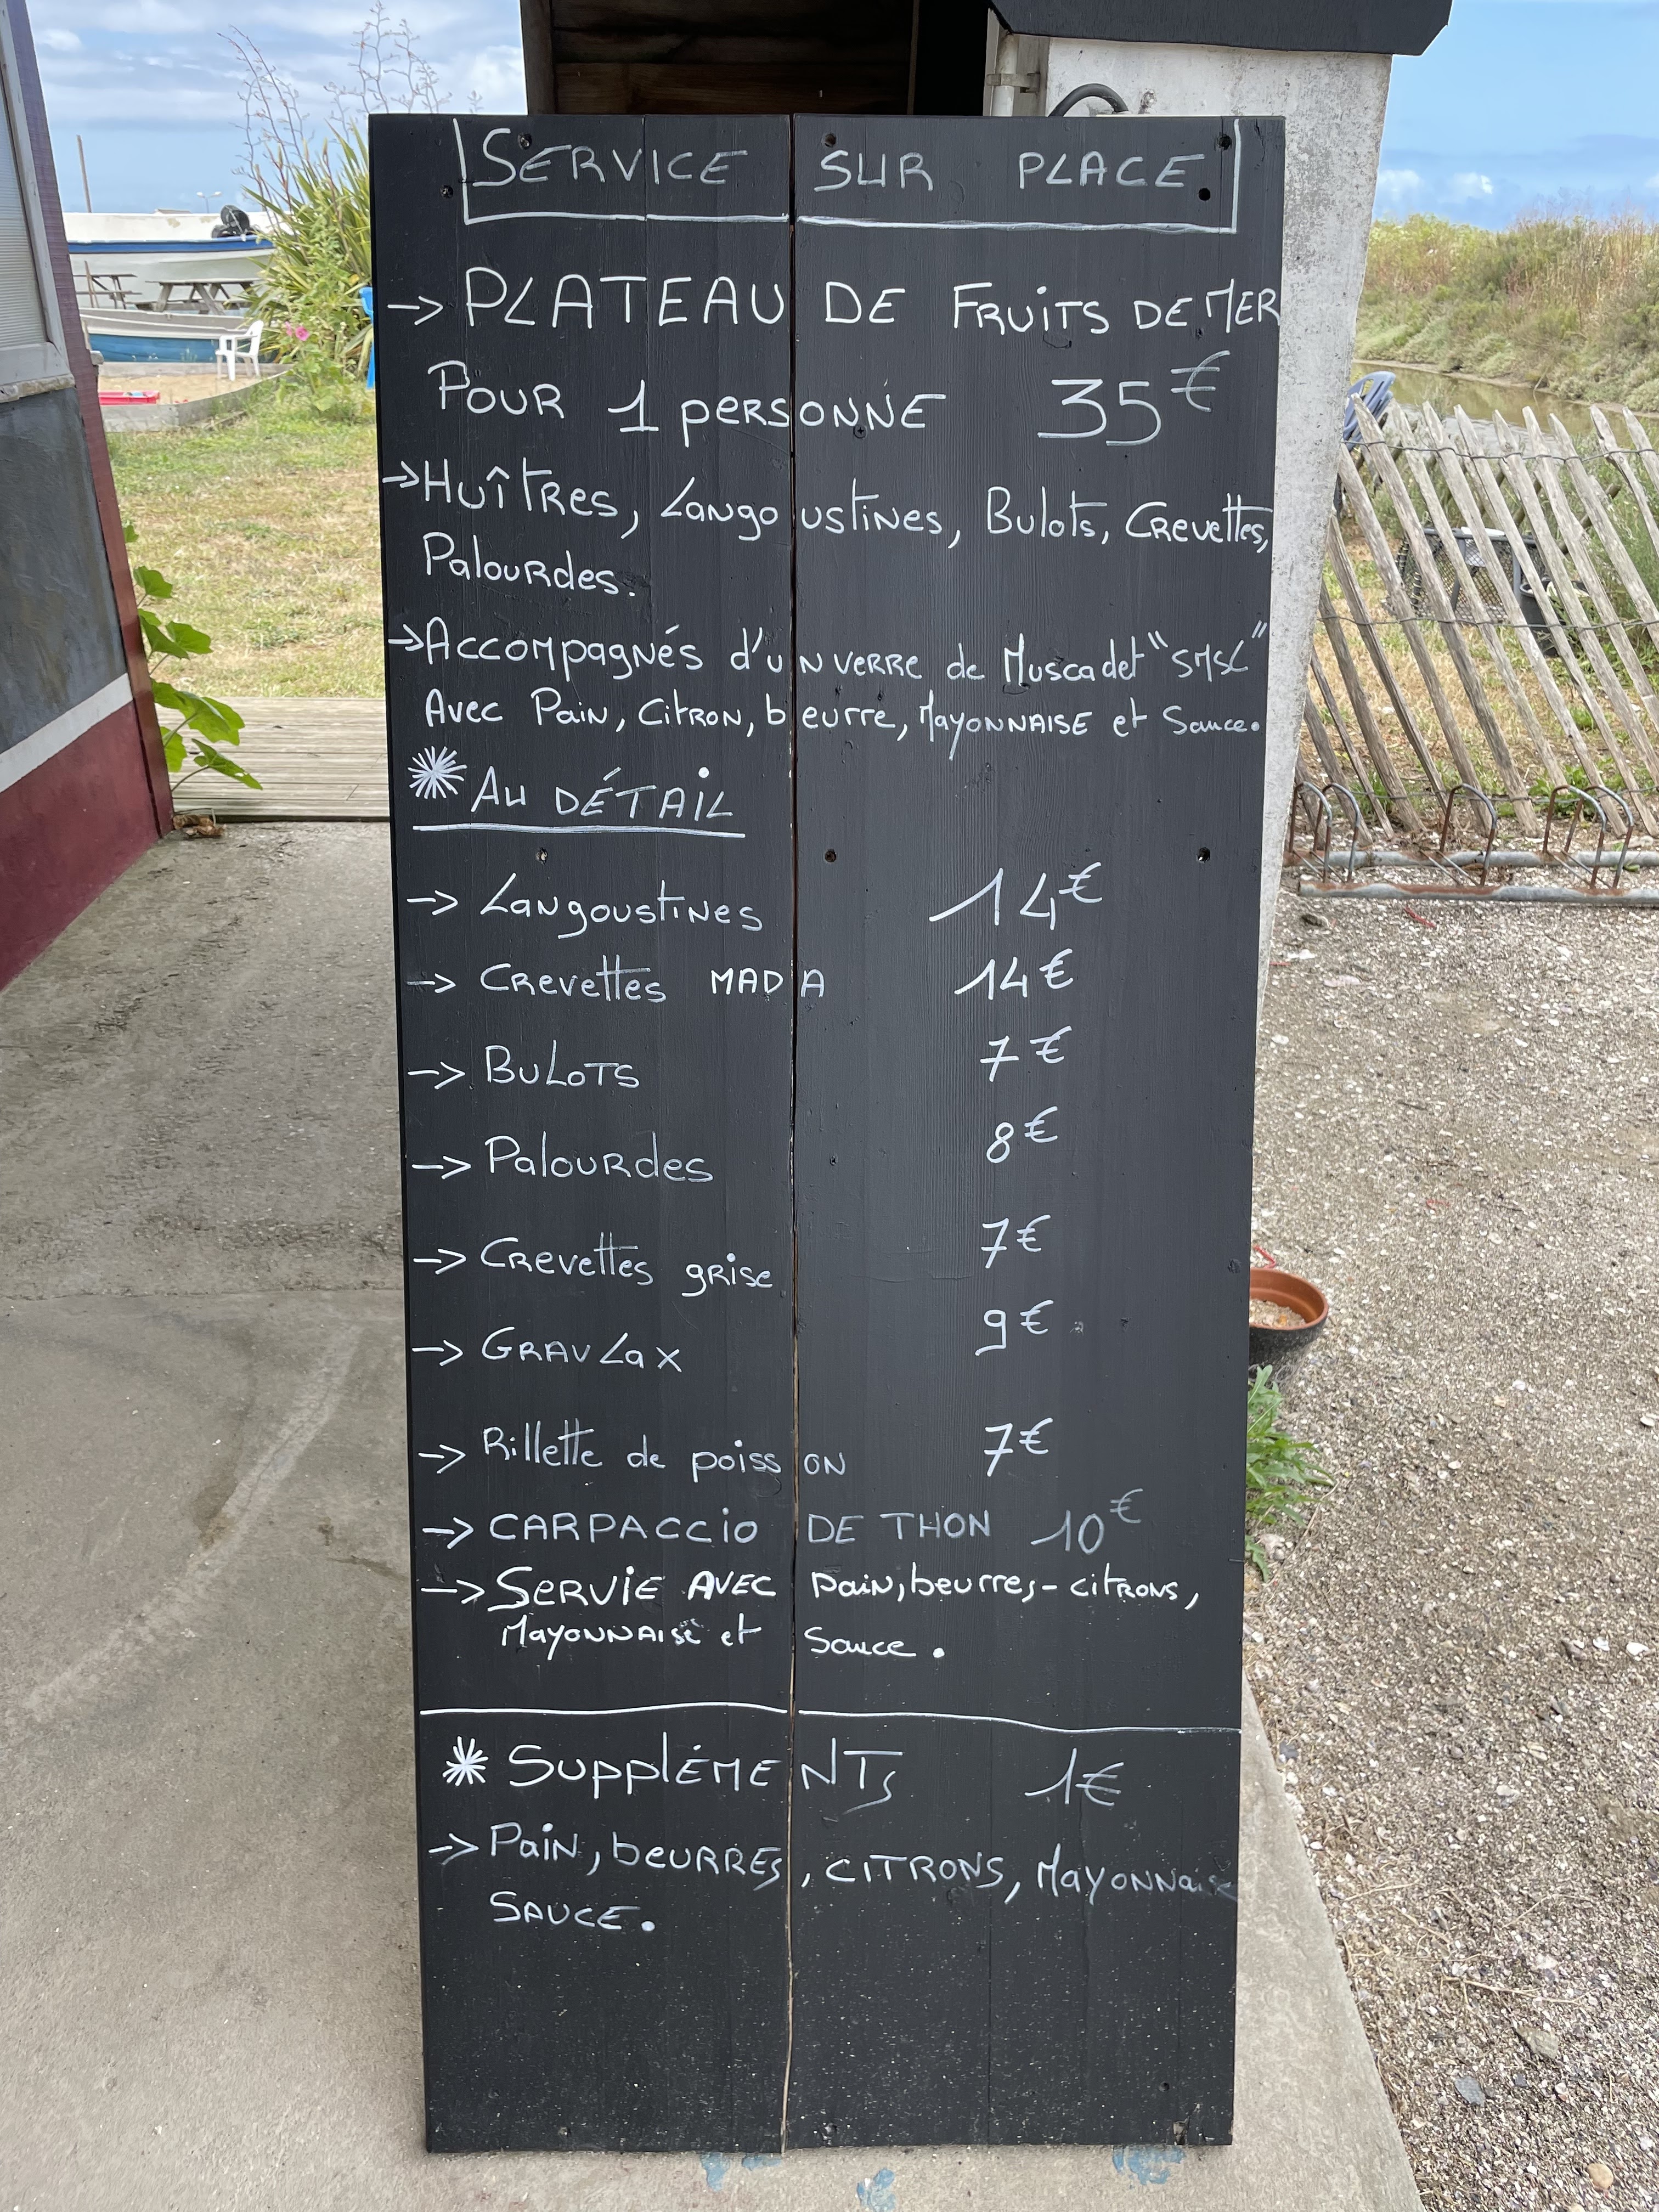 SERVICE SUR PLACE
→ PLATEAU DE FRUiTS DE MER
POUR 1 PERSONNE 35€
→ Huîtres, Langoustines, Bulots, Crevettes,
Palourdes.
→ Accompagnés d'un verre de Muscadet "SMSL"
Avec Pain, Citron, beurre, Mayonnaise et Sauce.
* AU DÉTAiL
→ Langoustines 14€
→ Crevettes MADA 14€
→ Bulots 7€
→ Palourdes 8€
→ Crevettes grise 7€
→ GravLax 9€
→ Rillette de poisson 7€
→ CARPACCiO DE THON 10€
→ SERVIE AVEC Pain, beurres - citrons,
Mayonnaise et Sauce.
* SUPPLÉMENTS 1€
→ Pain, beurres, CITRONS, Mayonnaise
SAUCE.